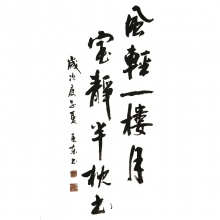 風輕一樓月
室靜半枕書
歲次庚子夏